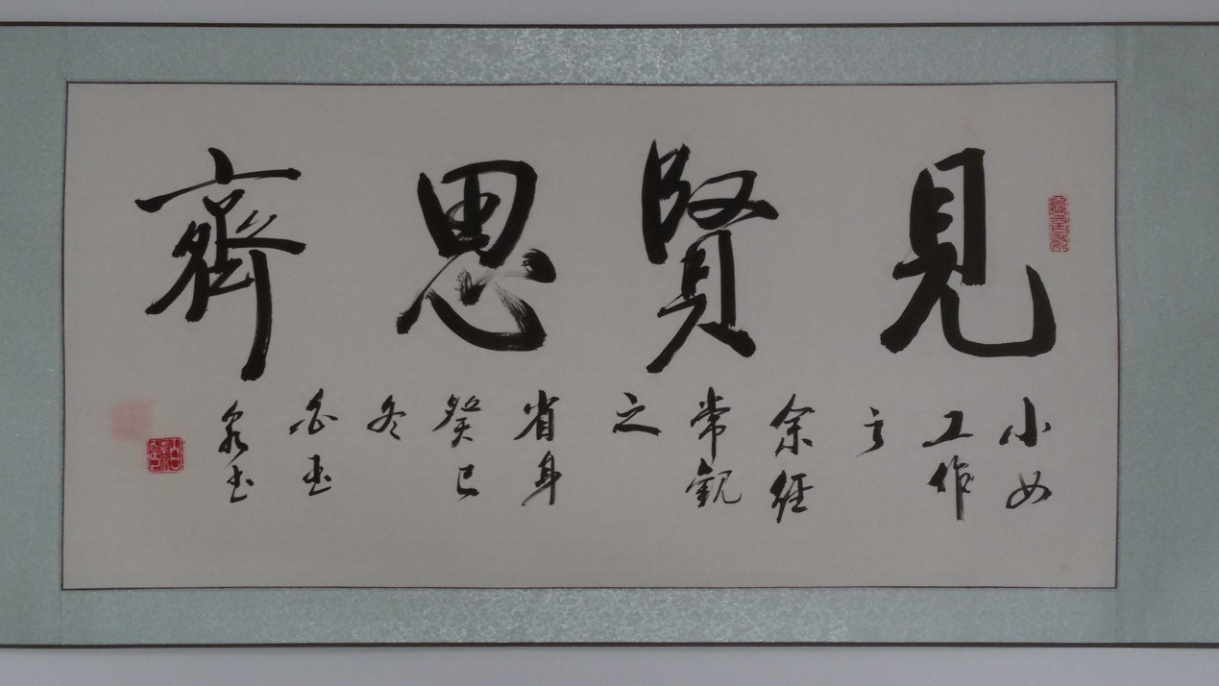 見賢思齊
小女
工作
亐
余經
常觀
之
省身
癸巳
冬
泉書